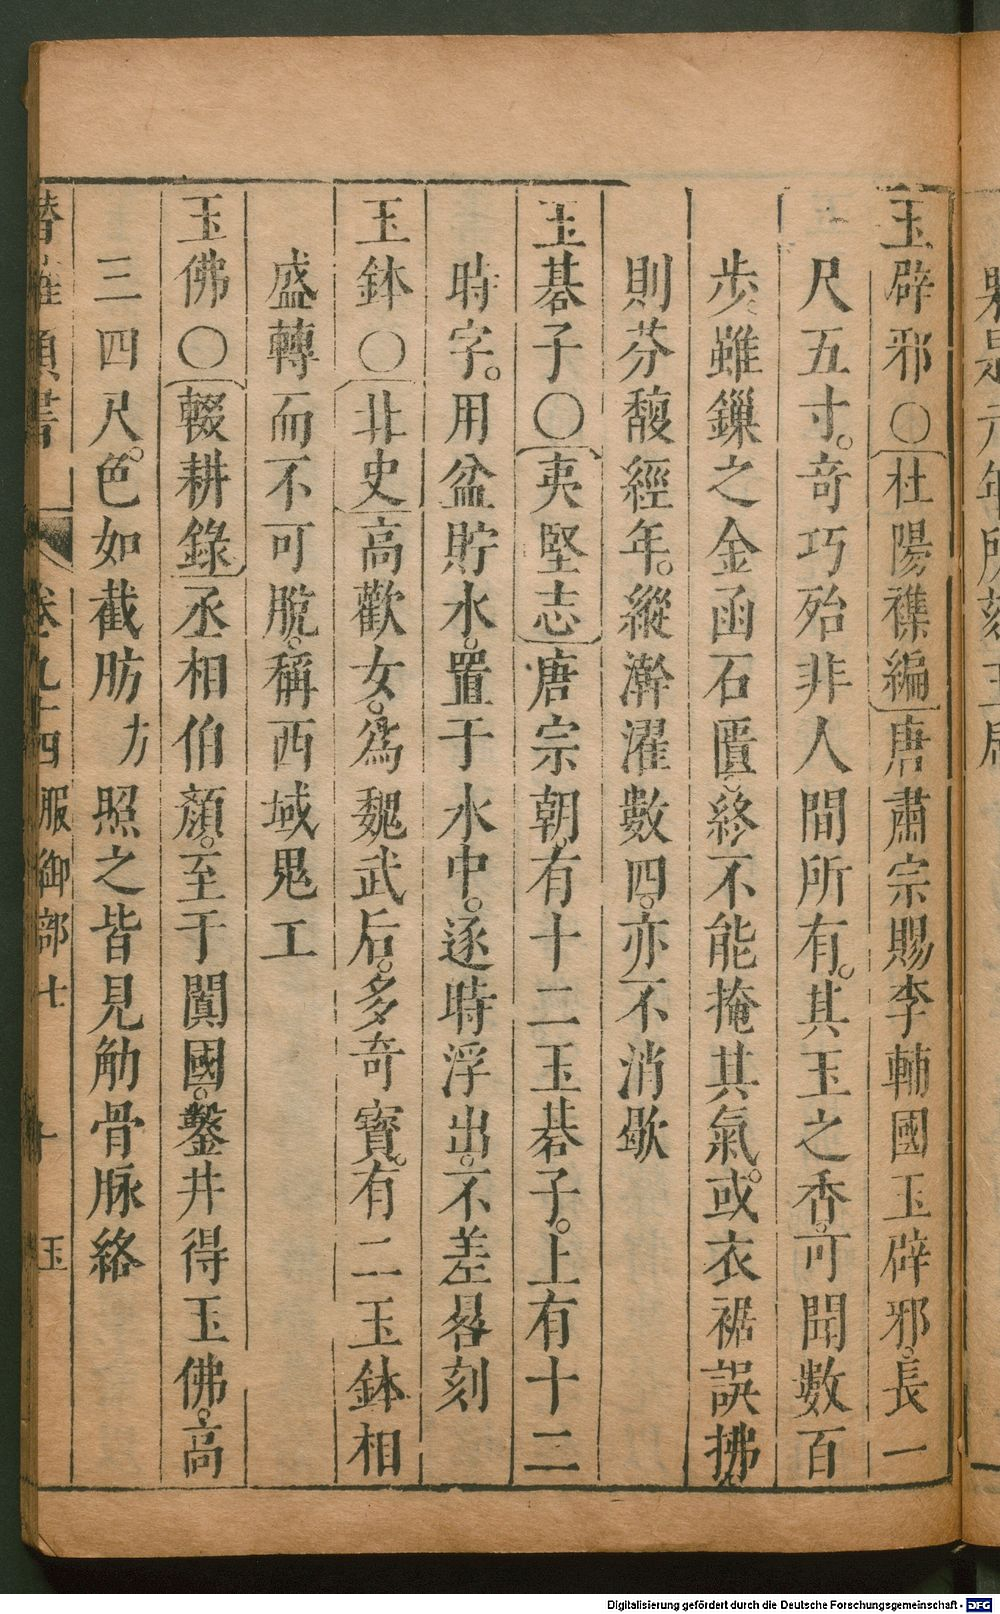 玉辟邪○杜陽襍編唐肅宗賜李輔國玉辟邪。長一
尺五寸。竒巧殆非人間所有。其玉之香。可聞數百
步。雖鏁之金函石匱。終不能掩其氣。或衣裾誤拂
則芬馥經年。縱澣濯數四。亦不消歇
玉碁子○夷堅志唐宗朝。有十二玉碁子。上有十二
時字。用盆貯水。置于水中。逐時浮出。不差晷刻
玉鉢○北史高歡女。為魏武后。多奇寳。有二玉鉢相
盛轉而不可脫。稱西域鬼工
玉佛○輟耕錄丞相伯顏。至于闐國。鑿井得玉佛。高
三四尺。色如截肪 照之皆見觔骨脉絡
類書 卷九十四 服御部 十 玉
Digitalisierung gefördert durch die Deutsche Forschungsgemeinschaft - DFG